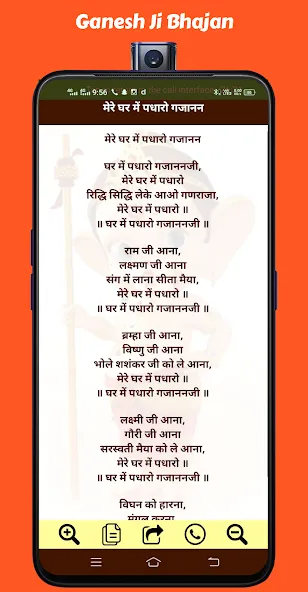 Ganesh Ji Bhajan
9:56
मेरे घर में पधारो गजानन
मेरे घर में पधारो गजानन
घर में पधारो गजाननजी,
मेरे घर में पधारो
रिद्धि सिद्धि लेके आओ गणराजा,
मेरे घर में पधारो ॥
॥ घर में पधारो गजाननजी ॥
राम जी आना,
लक्ष्मण जी आना
संग में लाना सीता मैया,
मेरे घर में पधारो ॥
॥ घर में पधारो गजाननजी ॥
ब्रम्हा जी आना,
विष्णु जी आना
भोले शशंकर जी को ले आना,
मेरे घर में पधारो ॥
॥ घर में पधारो गजाननजी ॥
लक्ष्मी जी आना,
गौरी जी आना
सरस्वती मैया को ले आना,
मेरे घर में पधारो ॥
॥ घर में पधारो गजाननजी ॥
विघन को हारना,
मंगल करना